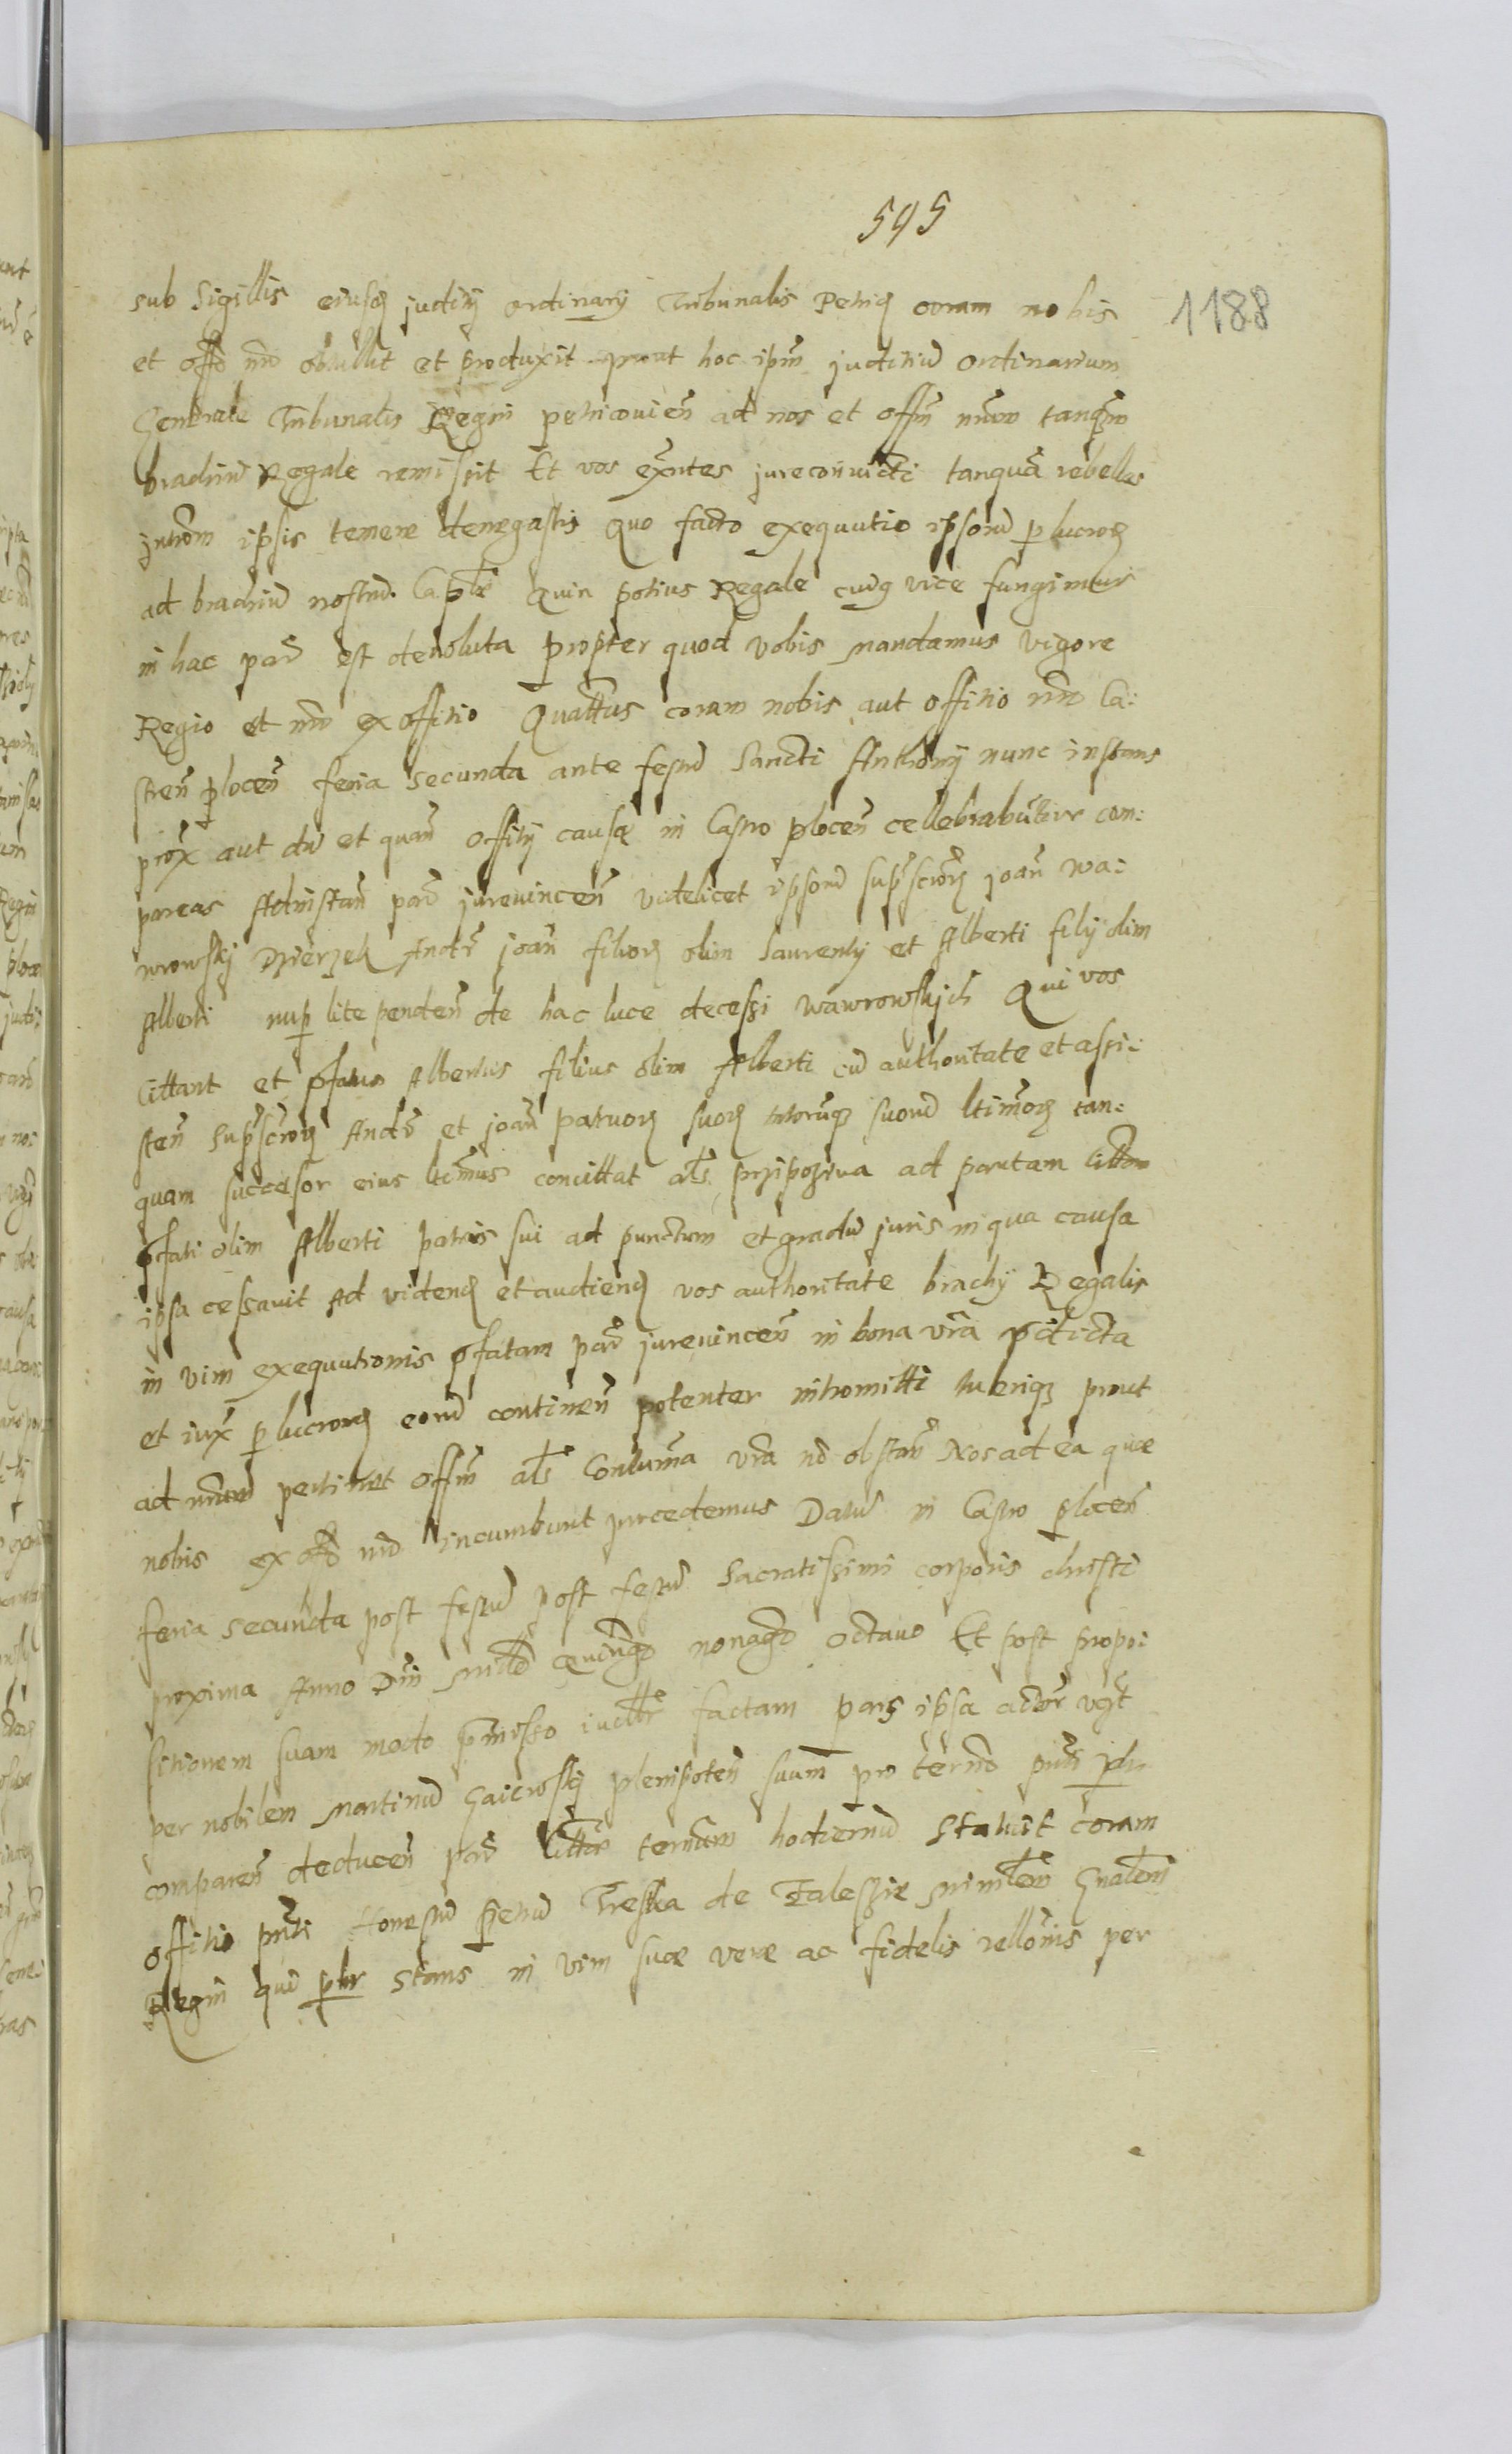 595
1188
sub Sigillis eiusd juditij ordinarij Tribunalis Petric coram nobis
et offo nro obtullit et produxit prout hoc ipm juditiu ordinarium
Generale Tribunalis Regni petricovien ad nos et offm nrum tanqm
brachiu Regale remissit Et vos exntes jureconvicti tanqua rebelles
introm ipsis temere denegastis Quo facto exequutio ipsoru p lucror
ad brachiu nostru Captle Quin potius Regale cuig vice fungimur
in hac par est devoluta propter quod vobis mandamus vigore
Regio et nro ex offitio Quattus coram nobis aut offitio nro Ca:
stren plocen feria secunda ante festu Sancti Anthonij nunc instans
prox aut du et quan offitij causæ in Castro plocen cellebrabuntur com:
pareas Adinstan par jurevincen videlicet ipsoru supscror joan Wa:
wrowskij Dzierzek Andr joan filior olim Laurentij et Alberti filij olim
Alberti nup lite penden de hac luce decessi Wawrowskich Qui vos
Cittant et pfatus Albertus filius olim Alberti cu authoritate et assi:
sten supscror Andr et joan patruor suor tutorumqz suoru ltimor tan:
quam succesor eius ltimus concittat als przipoziwa ad paratam cittom
pfati olim Alberti patris sui ad punctum et gradu juris in qua causa
ipsa cessavit Ad vidend et audiend vos authoritate brachij Regalis
in vim exequutionis pfatam par jurevincen in bona vra pdicta
et iux p lucror eoru continen potenter intromitti tueriqz prout
ad nrum pertinet offm als Contuma vra no obstan Nos ad ea quæ
nobis ex offo nro incumbunt procedemus Datu in Castro plocen
feria secunda post festu post festu Sacratissimi corporis christi
proxima Anno Dni Millo Quingo nonago octavo Et post propo:
sitionem suam modo pmisso iudlr factam pars ipsa actor vgt
per nobilem Martinu Gaiewskij plenipoten suum pro termo pnti plr
comparen deducen par cittat termum hodiernu statuit coram
offitio pnti Honestu Petru Treska de Zalesszie ministlem Gnalem
Regni qui plr stans in vim suæ veræ ac fidelis rellonis per